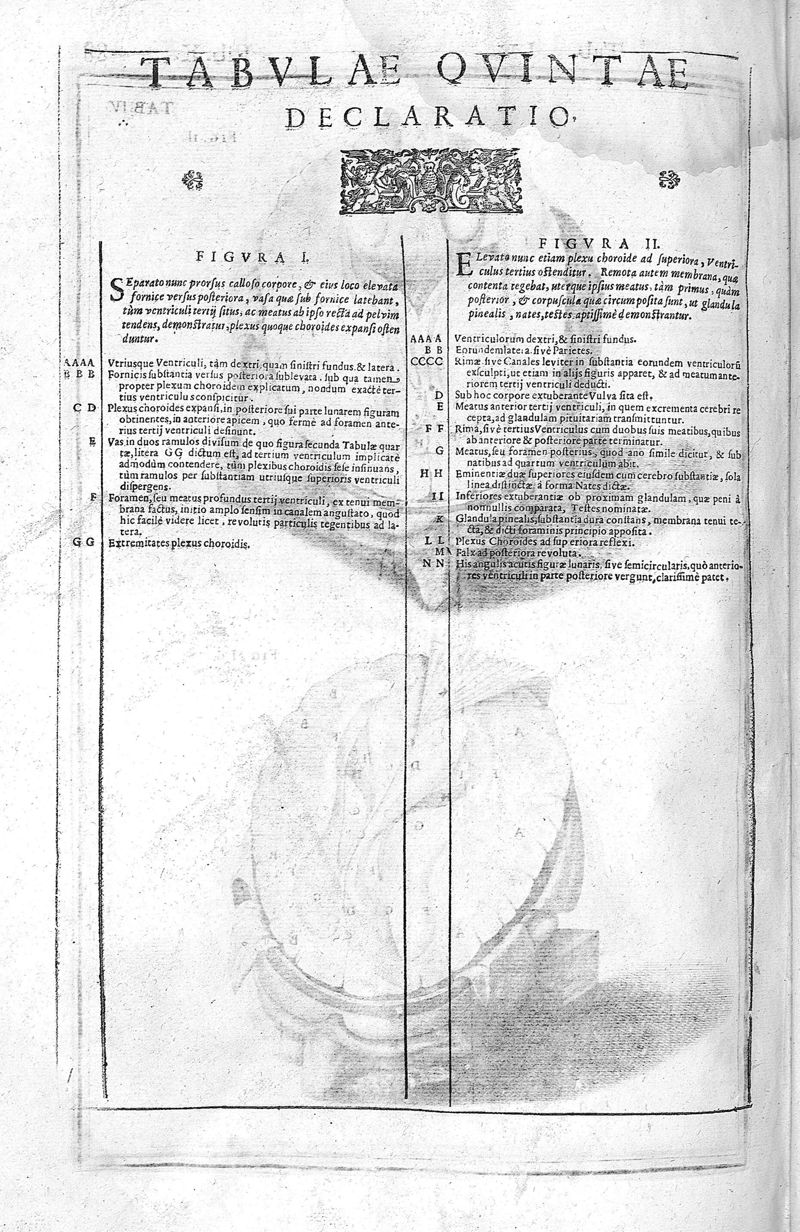 TABVLAE QVINTAE
DECLARATIO.
FIGVRA I.
SEparato nunc prorsus calloso corpore, & eius loco elevata
fornice versus posteriora, vasa quæ sub fornice latebant,
tùm ventriculi tertij situs, ac meatus ab ipso rectà ad pelvim
tendens, demonstratur, plexus quoque choroides expansi osten
duntur.
AAAA Vtriusque Ventriculi, tàm dextri quam sinistri fundus. & latera.
B B B Fornicis substantia versus posteriora sublevata. sub qua tamen
propter plexum choroidem explicatum, nondum exactè ter-
tius ventriculus conspicitur.
C D Plexus choroides expansi, in posteriore sui parte lunarem figuram
obtinentes, in anteriore apicem, quo fermè ad foramen ante-
rius tertij ventriculi desinunt.
E Vas in duos ramulos divisum de quo figura secunda Tabulæ quar
tæ, litera GG dictum est, ad tertium ventriculum implicatè
admodùm contendere, tùm plexibus choroidis sese insinuans,
tùm ramulos per substantiam utriusque superioris ventriculi
dispergens.
F Foramen, seu meatus profundus tertij ventriculi, ex tenui mem-
brana factus, initio amplo sensim in canalem angustato, quod
hic facilè videre licet, revolutis particulis tegentibus ad la-
tera.
G G Extremitates plexus choroidis.
FIGVRA II.
ELevato nunc etiam plexu choroide ad superiora, Ventri-
culus tertius ostenditur. Remota autem membrana, quæ
contenta tegebat, uterque ipsius meatus, tàm primus, quàm
posterior, & corpuscula quæ circumposita sunt, ut glandula
pinealis, nates, testes aptissimè demonstrantur.
AAAA Ventriculorum dextri, & sinistri fundus.
B B Eorundem latera, sivè Parietes.
CCCC Rimæ sive Canales leviter in substantia eorundem ventriculorũ
exsculpti, ut etiam in alijs figuris apparet, & ad meatum ante-
riorem tertij ventriculi deducti.
D Sub hoc corpore extuberante Vulva sita est.
E Meatus anterior tertij ventriculi, in quem excrementa cerebri re
cepta, ad glandulam pituitariam transmittuntur.
F F Rima, sivè tertius Ventriculus cum duobus suis meatibus, quibus
ab anteriore & posteriore parte terminatur.
G Meatus, seu foramen posterius, quod ano simile dicitur, & sub
natibus ad quartum ventriculum abit.
H H Eminentiæ duæ superiores eiusdem cum cerebro substantiæ, sola
linea distinctæ, à forma Nates dictæ.
I I Inferiores extuberantiæ ob proximam glandulam, quæ peni à
nonnullis comparata, Testes nominatæ.
K Glandula pinealis, substantia dura constans, membrana tenui te-
cta, & dicti foraminis principio apposita.
L L Plexus Choroides ad superiora reflexi.
M Falx ad posteriora revoluta.
N N His angulis acutis figuræ lunaris, sive semicircularis, quò anterio-
res ventriculi in parte posteriore vergunt, clarissimè patet.